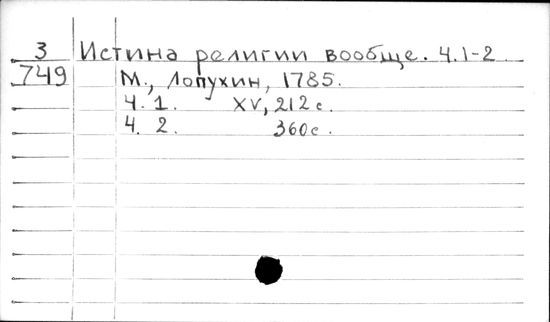 3 Истина религии вообще. Ч.1-2
749 М., Лопухин, 1785.
Ч. 1. XV, 212 с.
Ч. 2. 360с.